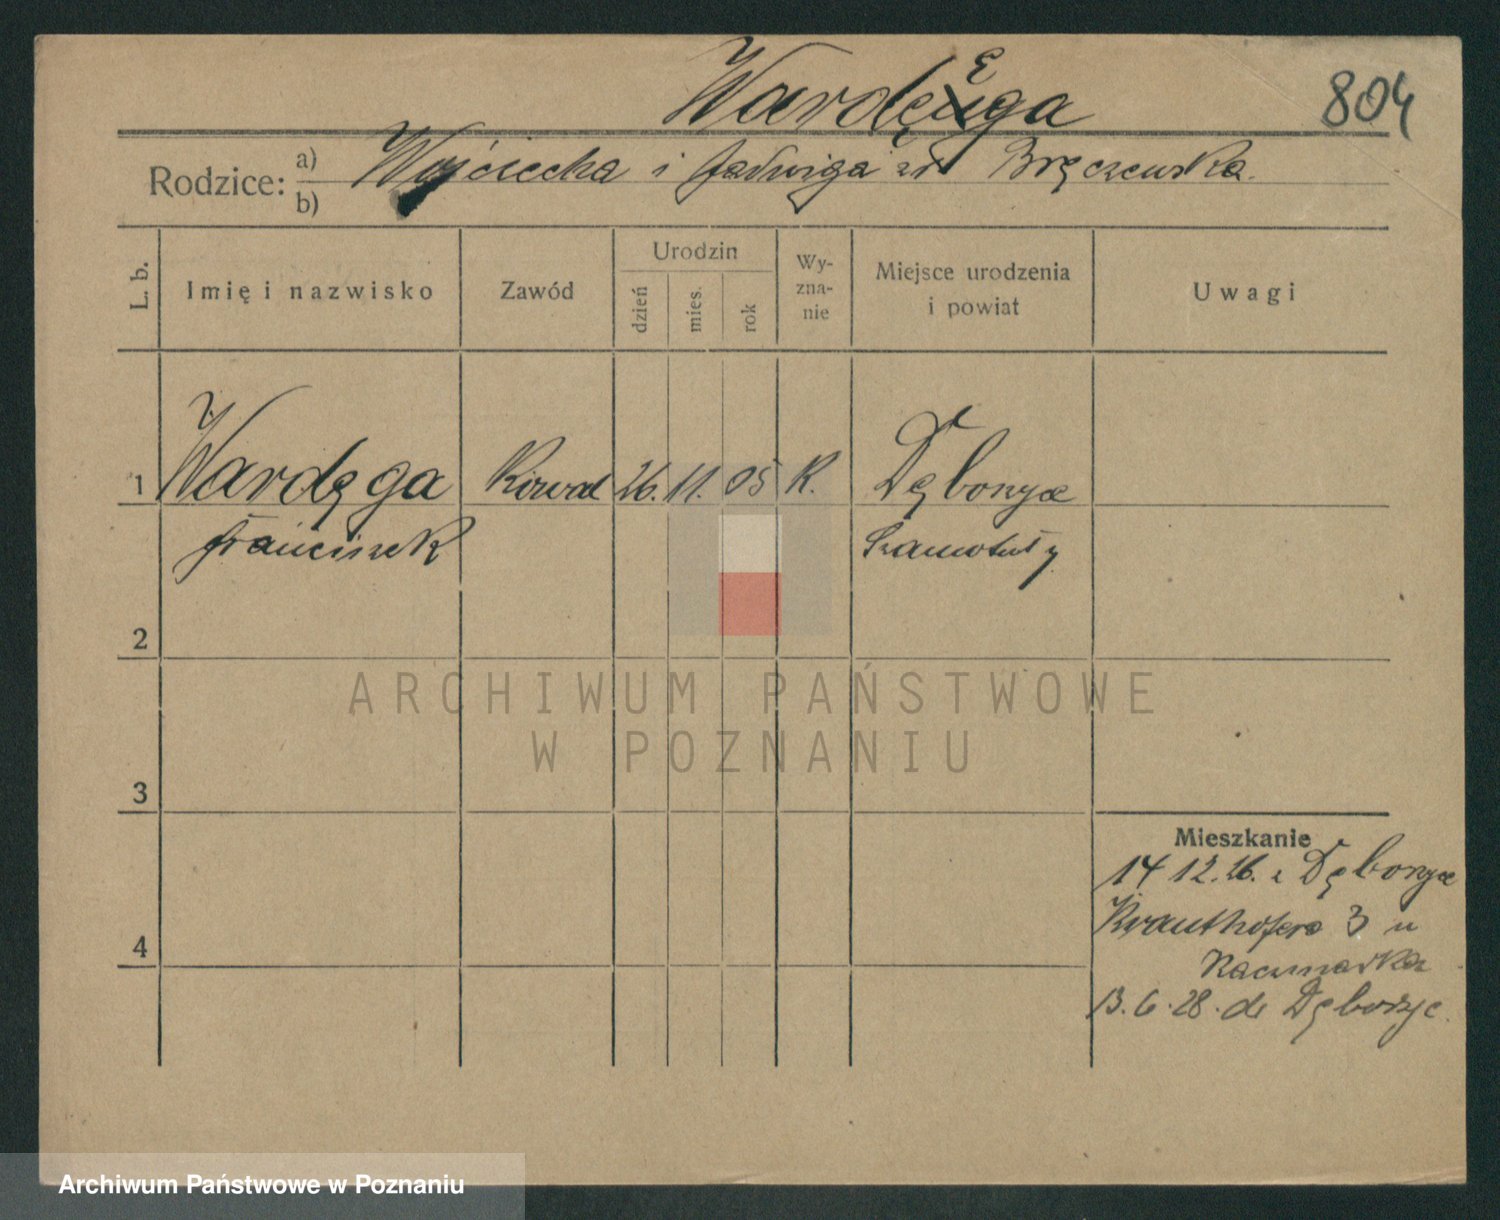 Wardęga
804
Rodzice: a) Wojciecha i Jadwiga zd Bręczewska.
b)
L. b.
Imię i nazwisko
Zawód
Urodzin
dzień
mies.
rok
Wy-
zna-
nie
Miejsce urodzenia
i powiat
Uwagi
1 Wardęga Kowal 26. 11. 05 R.
Franciszek Szamotuły
2
3
4
ARCHIWUM PAŃSTWOWE
W POZNANIU
Mieszkanie
14 12. 26. z
Krauthofera 3 u
Kaczmarka
13. 6. 28. do
Archiwum Państwowe w Poznaniu